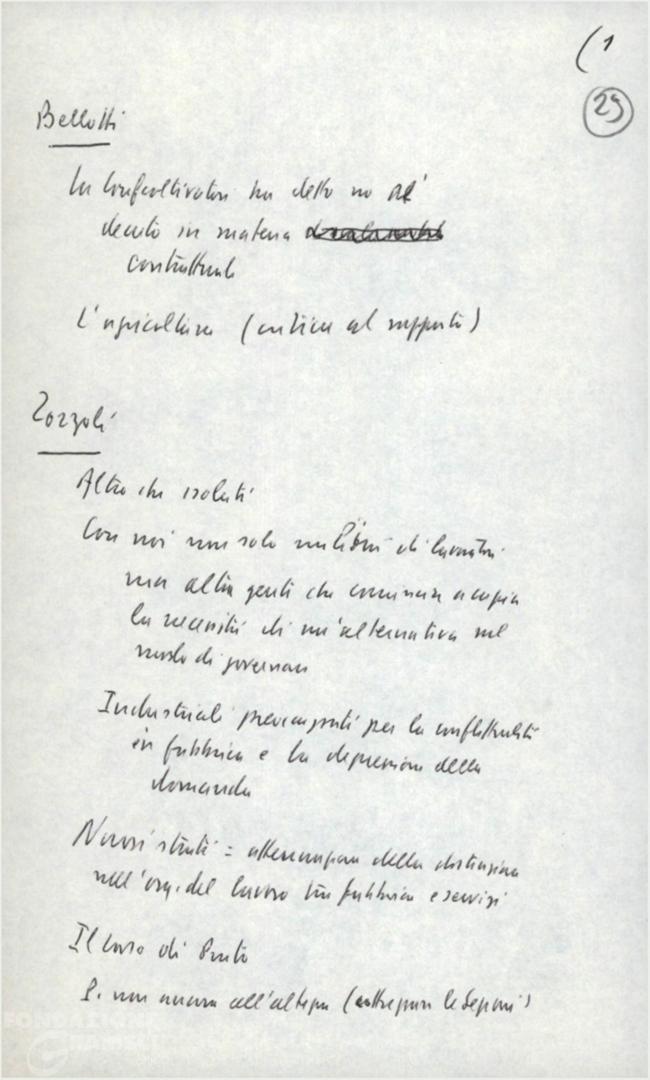 (1
25
Bellotti
La Confcoltivatori ha detto no al
decreto in materia
contrattuale
L'agricoltura (critica al rapporto)
Zorzoli
Altro che isolati
Con noi non solo milioni di lavoratori
ma altra gente che comincia a capire
la necessità di un'alternativa nel
modo di governare
Industriali preoccupati per la conflittualità
in fabbrica e la depressione della
domanda
Nuovi strati = attenuazione della distinzione
nell'org. del lavoro tra fabbrica e servizi
Il caso di Prato
P. non ancora all'altezza (
FONDAZIONE
GRAMSCI